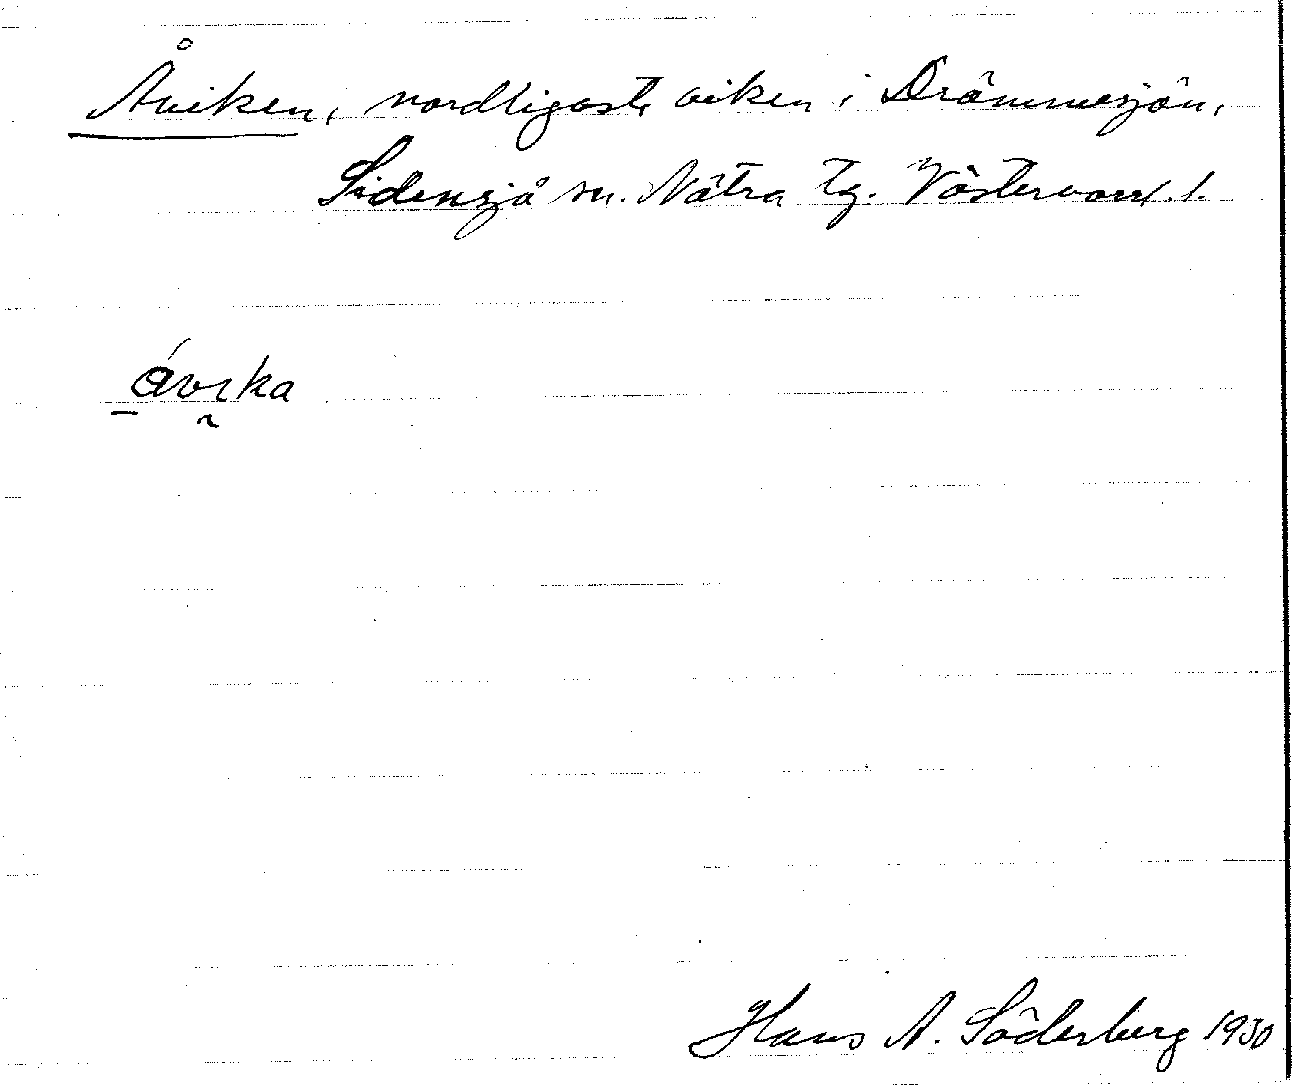 Åviken, nordligaste viken i Drömmesjön,
Sidensjö sn. Nätra tg. Västernorrl. l.
ávıka
Hans A. Söderberg 1930